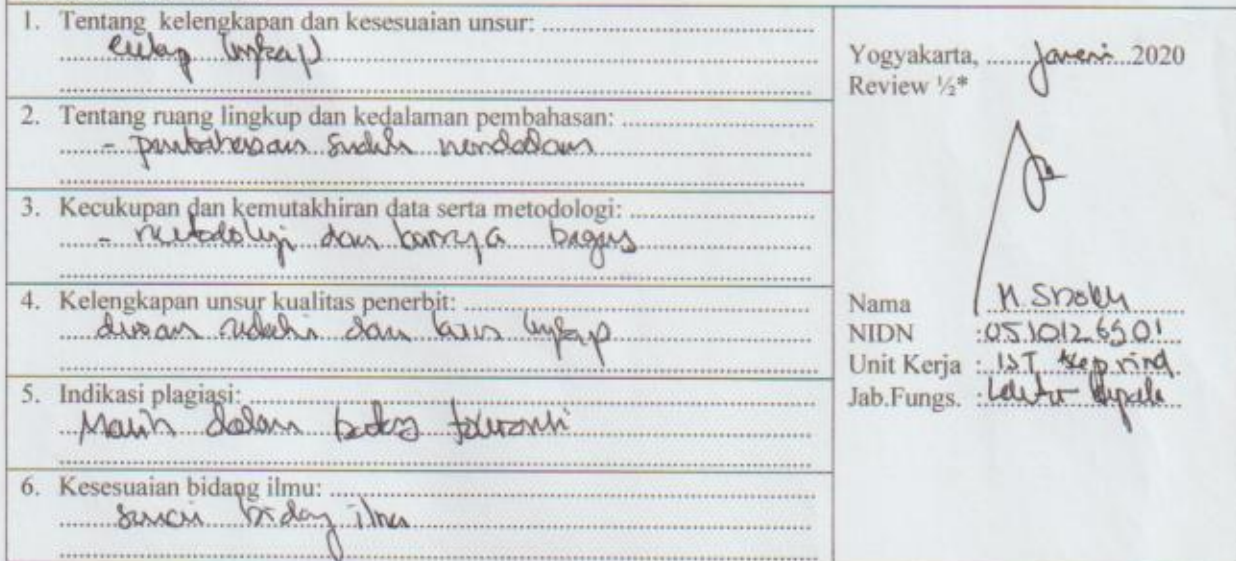 1. Tentang kelengkapan dan kesesuaian unsur:
cukup lengkap
2. Tentang ruang lingkup dan kedalaman pembahasan:
- pembahasan sudah mendalam
3. Kecukupan dan kemutakhiran data serta metodologi:
- metodologi dan bagus
4. Kelengkapan unsur kualitas penerbit:
dan lengkap
5. Indikasi plagiasi:
Masih dalam batas toleransi
6. Kesesuaian bidang ilmu:
sesuai bidang ilmu
Yogyakarta, Januari 2020
Review ½*
Nama
NIDN :0510126501
Unit Kerja : IST
Jab.Fungs. : Lektor Kepala